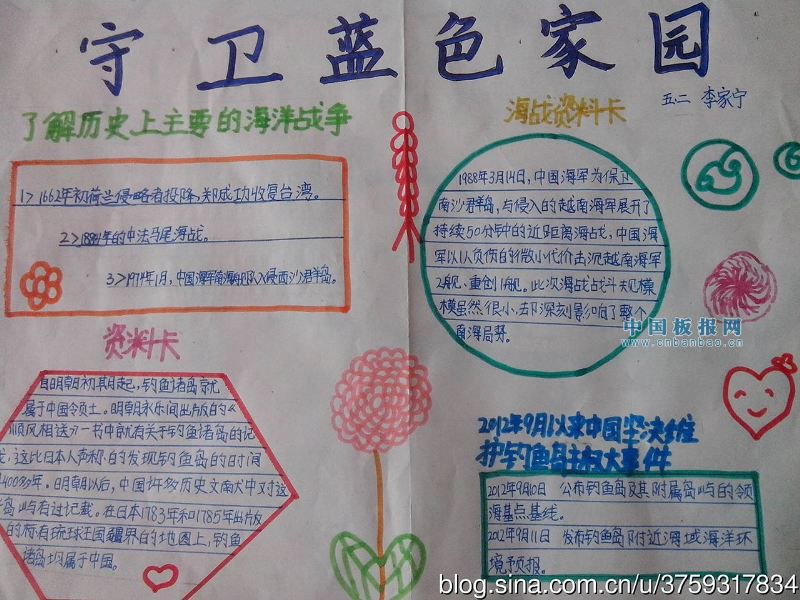 守卫蓝色家园
五二 李家宁
了解历史上主要的海洋战争
1> 1662年初荷兰侵略者投降,郑成功收复台湾。
2> 1884年的中法马尾海战。
3> 1974年1月,中国海军南海舰队入侵西沙群岛。
海战资料卡
1988年3月14日,中国海军为保卫
南沙群岛,与侵入的越南海军展开了
持续50分钟的近距离海战,中国海
军以1人负伤的微小代价击沉越南海军
2舰、重创1舰。此次海战战斗规模
模虽然很小,却深刻影响了整个
南海局势。
中国板报网
www.cnbanbao.cn
资料卡
自明朝初期起,钓鱼诸岛就
属于中国领土。明朝永乐间出版的《
顺风相送》一书中就有关于钓鱼诸岛的记
这比日本人声称的发现钓鱼岛的时间
400多年。明朝以后,中国许多历史文献大中对这
岛屿有过记载。在日本1783年和1785年出版
的标有琉球王国疆界的地图上,钓鱼
诸岛均属于中国。
2012年9月以来中国坚决维
护钓鱼岛主权大事件
2012年9月10日 公布钓鱼岛及其附属岛屿的领
海基点基线。
2012年9月11日 发布钓鱼岛附近海域海洋环
境予报。
blog.sina.com.cn/u/3759317834